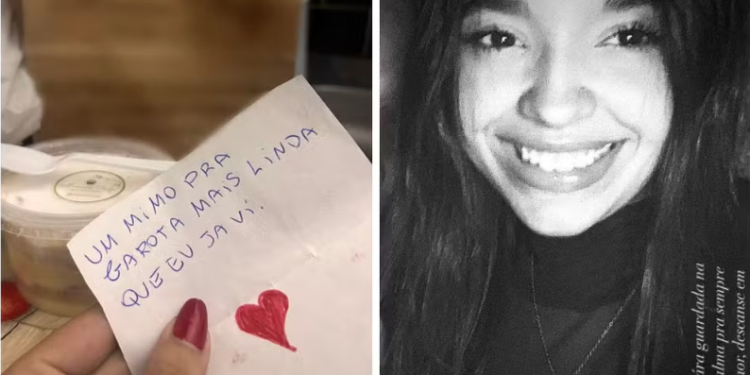 UM MIMO PRA
GAROTA MAIS LINDA
QUE EU JA VI.
guardada na
alma pra sempre
descanse em